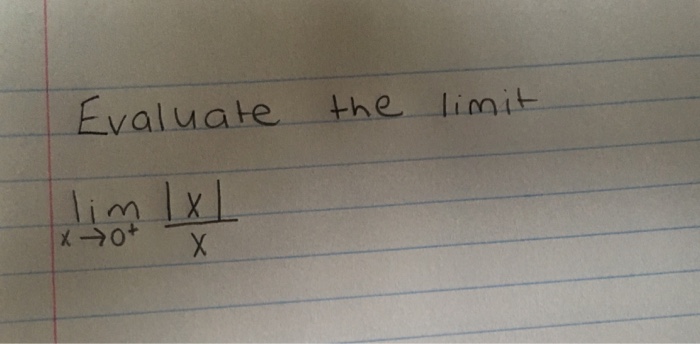 Evaluate the limit
lim |x|
x→0⁺ x